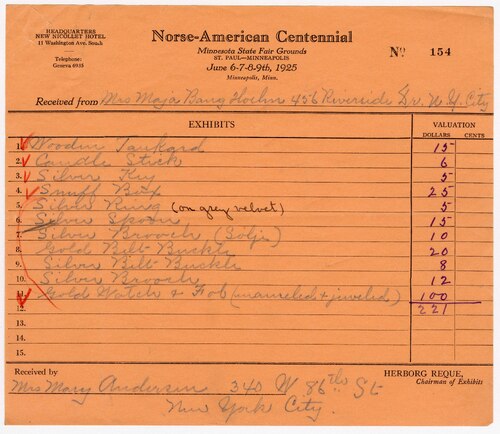 HEADQUARTERS
NEW NICOLLET HOTEL
11 Washington Ave. South
Telephone:
Geneva 6935
Norse-American Centennial
Minnesota State Fair Grounds
ST. PAUL—MINNEAPOLIS
June 6-7-8-9th, 1925
Minneapolis, Minn.
No 154
Received from Mrs Maja Bang Hoehn 456 Riverside Dr. N.Y. City
EXHIBITS
VALUATION
DOLLARS CENTS
1. Wooden Tankard 15
2. Candle Stick 6
3. Silver Key 5
4. Snuff Box 25
5. Silver Ring (on grey velvet) 5
6. Silver Spoon 15
7. Silver Brooch (Solje) 10
8. Gold Belt Buckle 20
9. Silver Belt Buckle 8
10. Silver Brooch 12
11. Gold Watch & Fob (enameled & jeweled) 100
12. 221
13.
14.
15.
Received by
Mrs Mary Andersen 340 W 86th St
New York City.
HERBORG REQUE,
Chairman of Exhibits